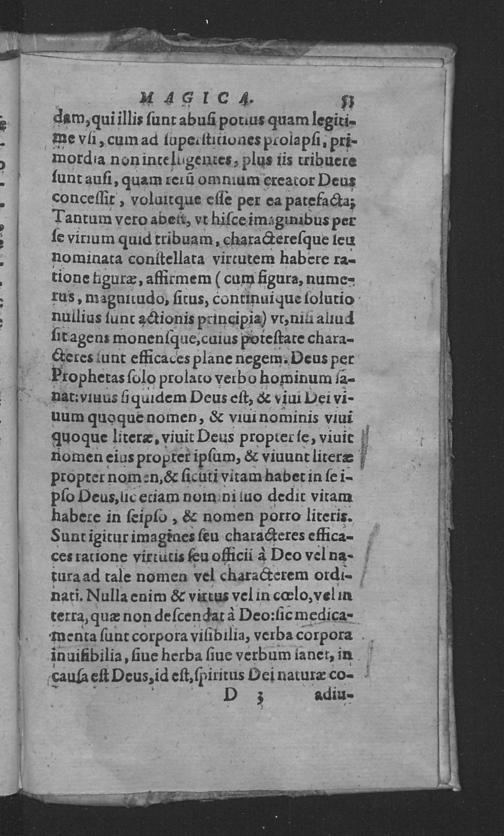 MAGICA. 53
dam, qui illis sunt abusi potius quam legiti-
me vsi, cum ad superstitiones prolapsi, pri-
mordia non intelligentes, plus iis tribuere
sunt ausi, quam rerũ omnium creator Deus
concessit, voluitque esse per ea patefacta;
Tantum vero abest, vt hisce imaginibus per
se virium quid tribuam, characteresque seu
nominata constellata virtutem habere ra-
tione figuræ, affirmem (cum figura, nume-
rus, magnitudo, situs, continuique solutio
nullius sunt actionis principia) vt, nisi aliud
sit agens monensque, cuius potestate chara-
cteres sunt efficaces plane negem. Deus per
Prophetas solo prolato verbo hominum sa-
nat: viuus siquidem Deus est, & viui Dei vi-
uum quoque nomen, & viui nominis viui
quoque literæ, viuit Deus propter se, viuit
nomen eius propter ipsum, & viuunt literæ
propter nomen, & sicuti vitam habet in se i-
pso Deus, sic etiam nomini suo dedit vitam
habere in seipso, & nomen porro literis.
Sunt igitur imagines seu characteres effica-
ces ratione virtutis seu officii à Deo vel na-
tura ad tale nomen vel characterem ordi-
nati. Nulla enim & virtus vel in cœlo, vel in
terra, quæ non descendat à Deo: sic medica-
menta sunt corpora visibilia, verba corpora
inuisibilia, siue herba siue verbum sanet, in
causa est Deus, id est, spiritus Dei naturæ co-
D 3 adiu-